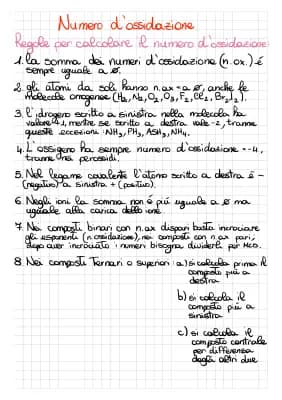 Numero d'ossidazione
Regole per calcolare il numero d'ossidazione:
1. La somma dei numeri d'ossidazione (n.ox.) é
sempre uguale a ø.
2. gli atomi da soli hanno n.ox = a ø, anche le
molecole omogenee (H2, N2, O2, O3, F2, Cl2, Br2, I2).
3. l'idrogeno scritto a sinistra nella molecola ha
valore +1, mentre se scritto a destra vale -1, tranne
queste eccezioni: NH3, PH3, ASH3, NH4.
4. L'ossigeno ha sempre numero d'ossidazione
tranne nei perossidi.
5. Nel legame covalente l'atomo scritto a destra é -
(negativo) a sinistra + (positivo).
6. Negli ioni la somma non é più uguale a ø ma
uguale alla carica dello ione.
7. Nei composti binari con n.ox dispari basta incrociare
gli esponenti (n.ossidazione), nei composti con n.ox pari,
dopo aver incrociato i numeri bisogna dividerli per MCD.
8. Nei composti Ternari o superiori: a) si calcola prima il
composto più a
destra
b) si calcola il
composto più a
sinistra
c) si calcola il
composto centrale
per differenza
degli altri due